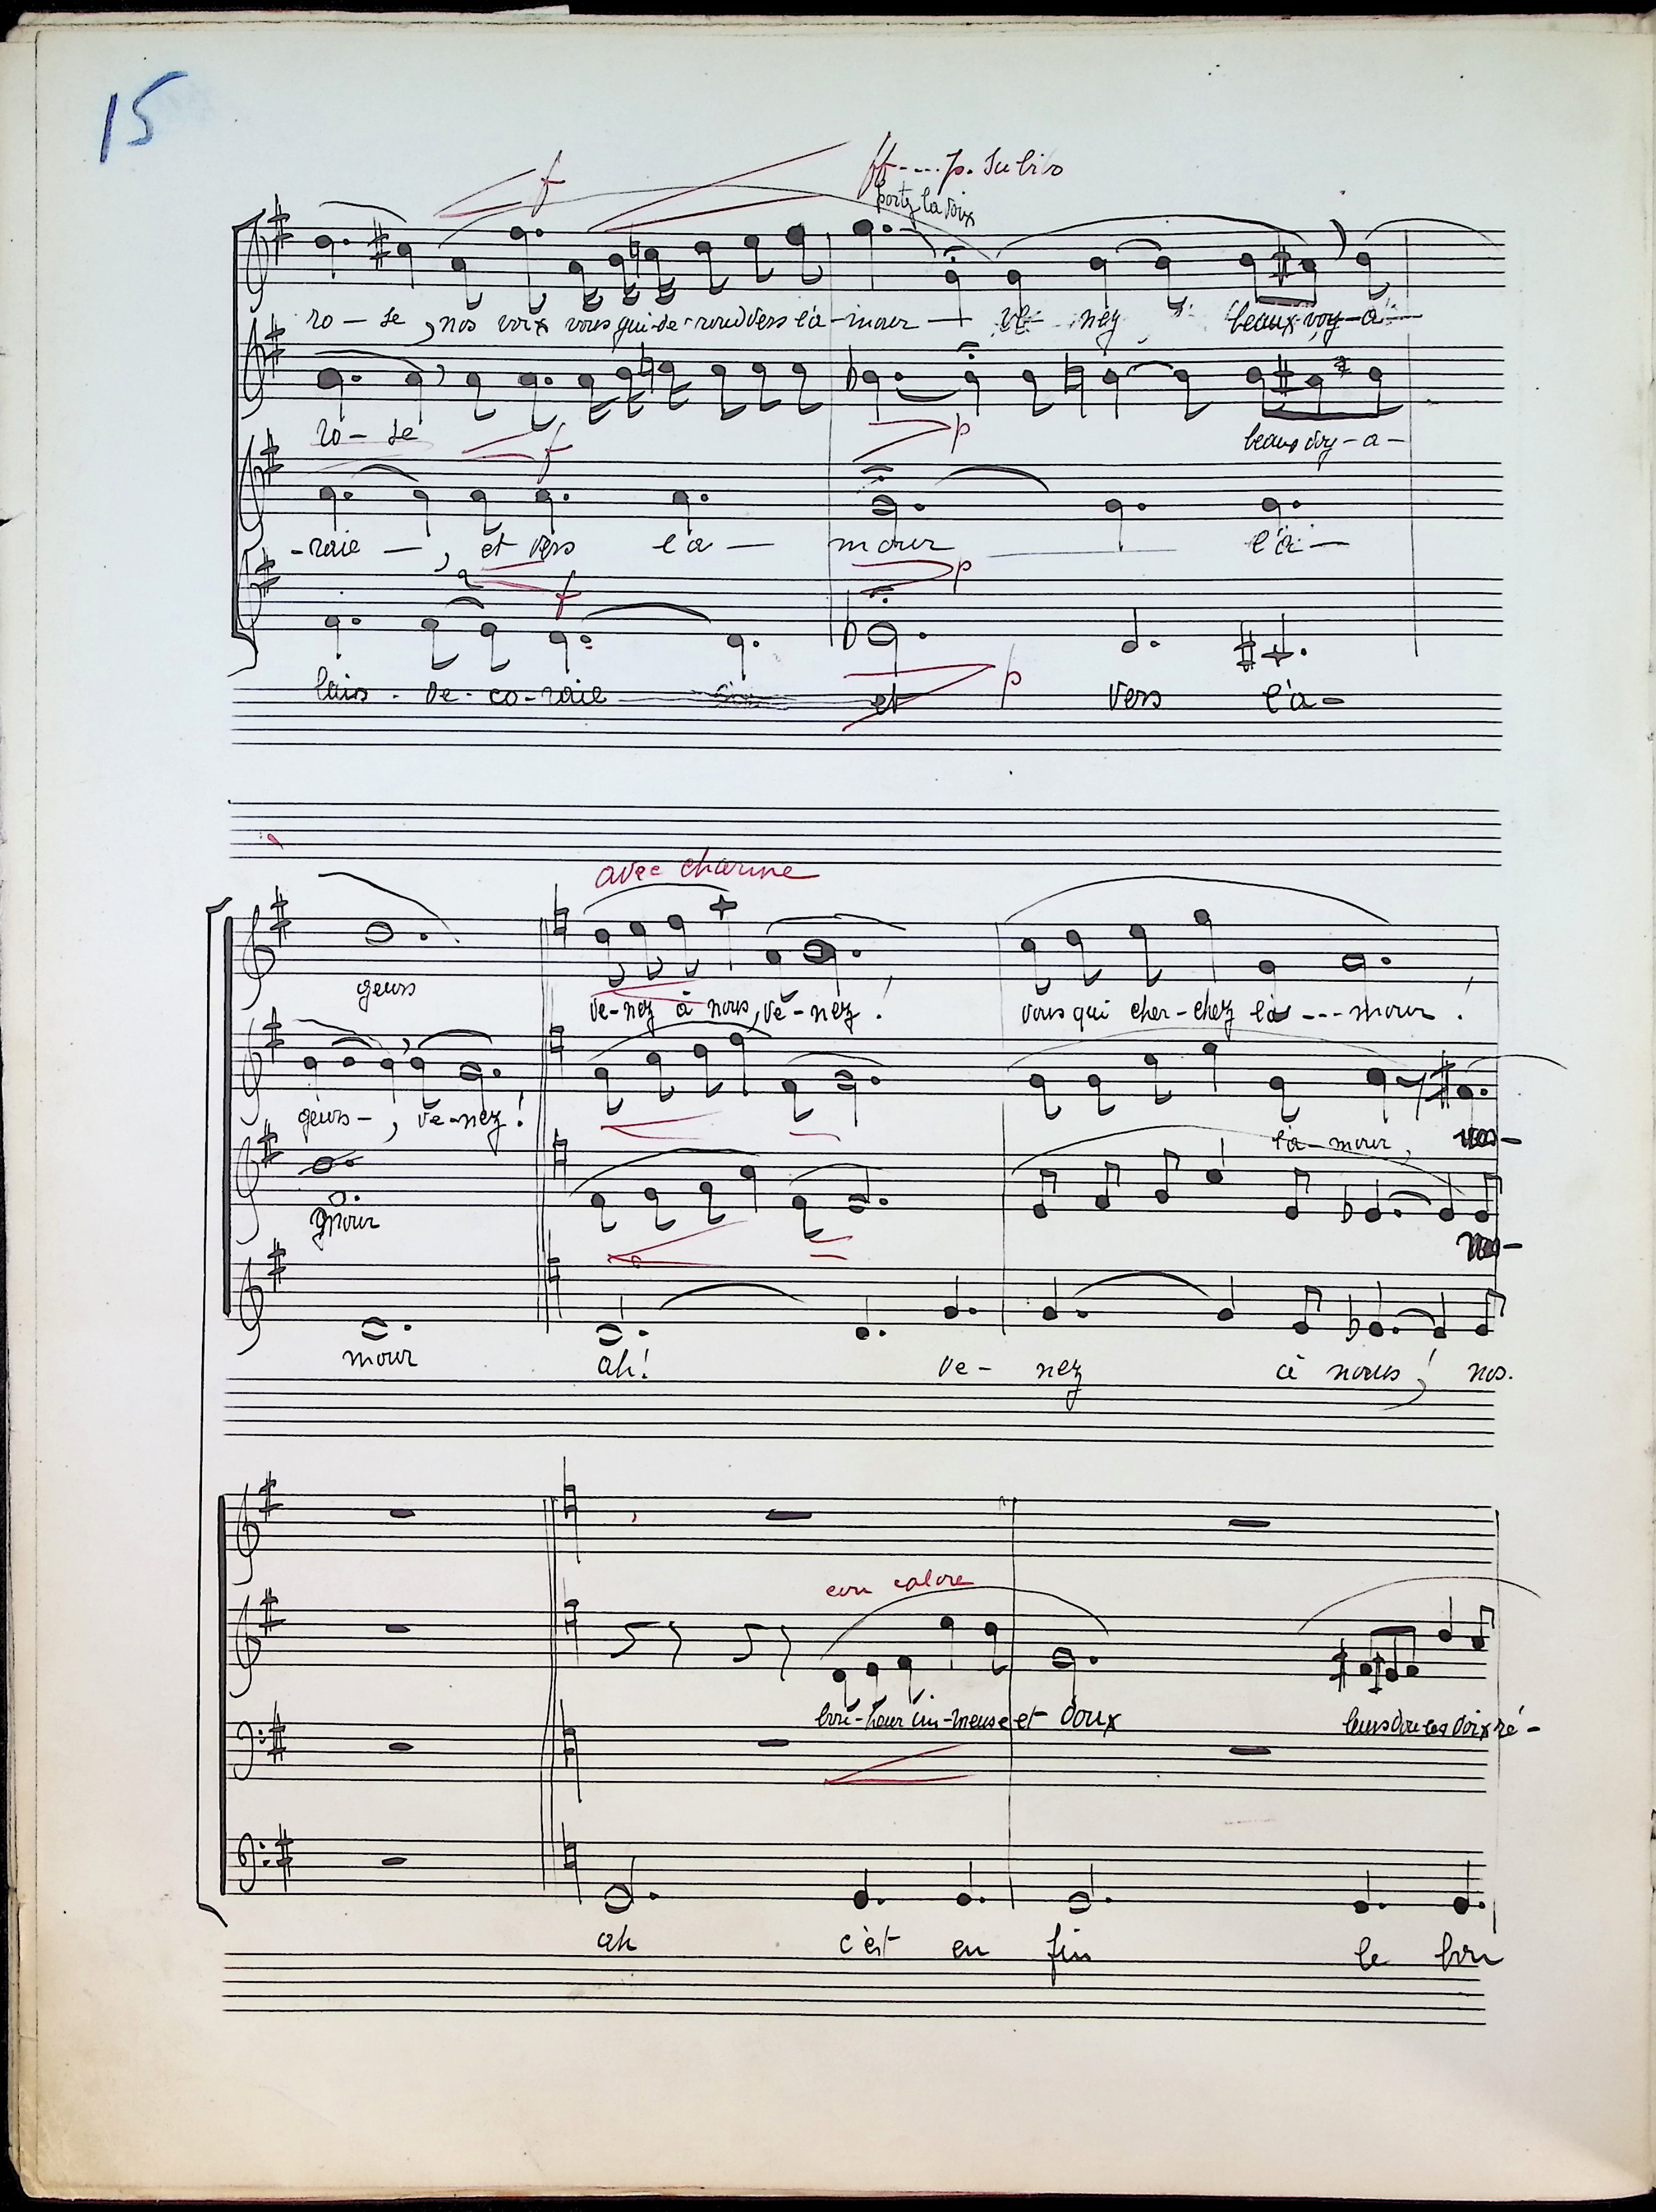 15
f ff....p. subito
portez la voix
ro - se, nos voix vous gui-de-rond vers l'a-mour - ve - nez beaux voy-a-
ro - se beaux voy-a-
f p
-raie -, et vers l'a - mour l'a -
f p
lais - de - co - raie et vers l'a -
p
avec charme
geurs ve-nez à nous, ve-nez! vous qui cher-chez l'a --- mour.
geurs -, ve-nez! l'a-mour,
mour
mour ah! ve - nez à nous! nos.
con calore
bon-heur im-mense et doux leurs douces voix ré-
ah c'est en fin le bon